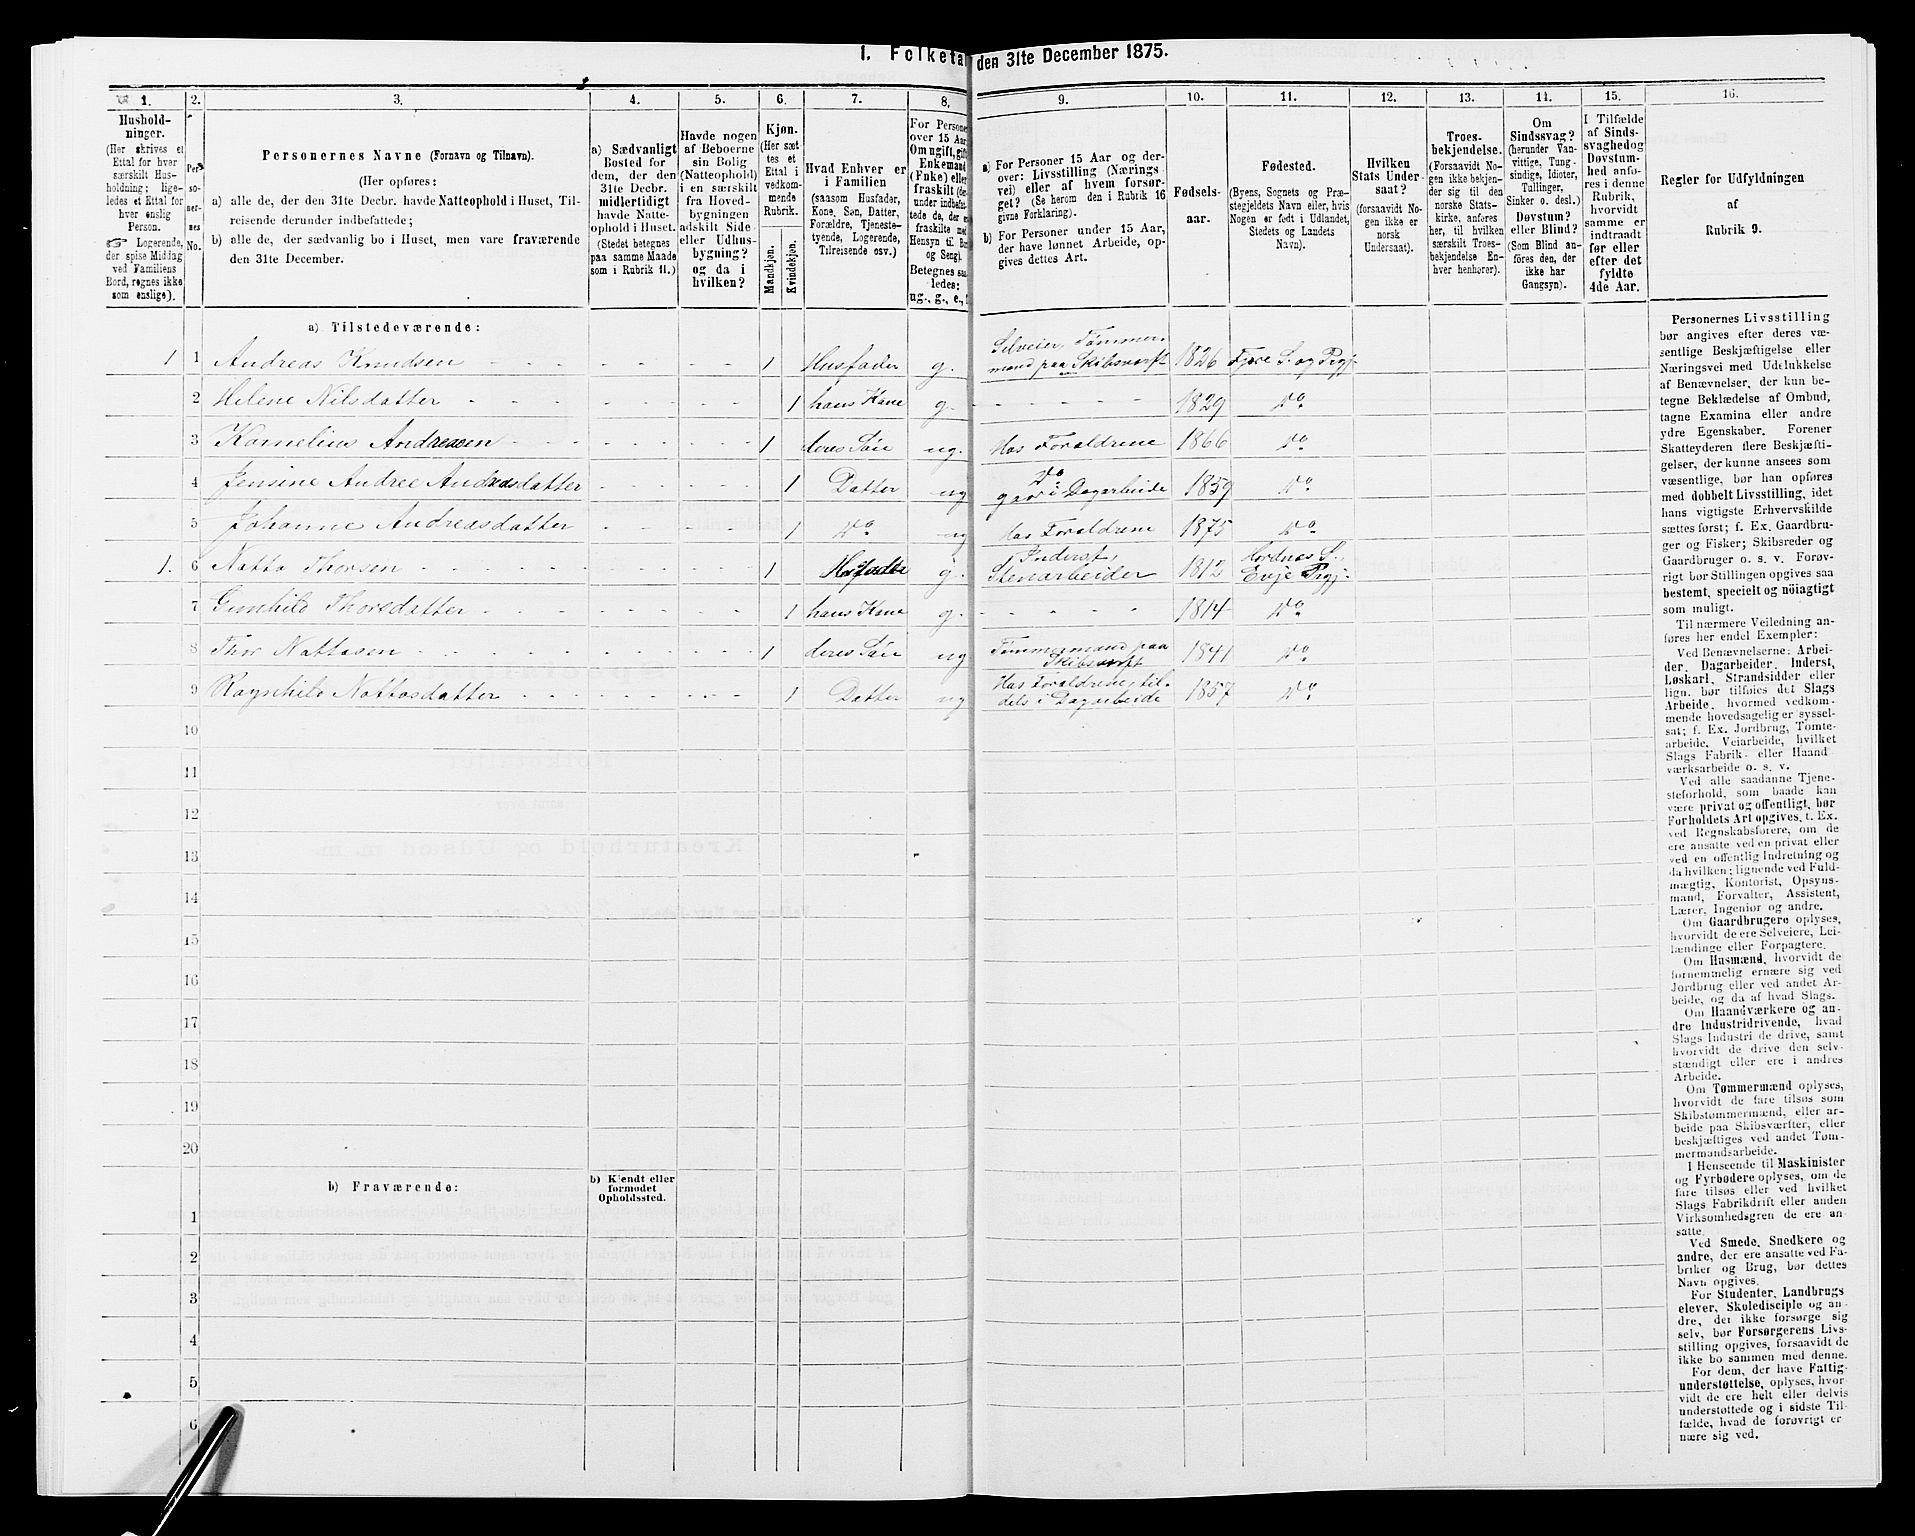 I. Folketa den 31te December 1875.
1. 2. 3. 4. 5. 6. 7. 8. 9. 10. 11. 12. 13. 14. 15. 16.
Hushold-
ninger.
(Her skrives et
Ettal for hver
særskilt Hus-
holdning; lige-
ledes et Ettal for
hver enslig
Person.
☞ Logerende,
der spise Middag
ved Familiens
Bord, regnes ikke
som enslige).
Per-
so-
ner-
nes
No.
Personernes Navne (Fornavn og Tilnavn).
(Her opføres:
a) alle de, der den 31te Decbr. havde Natteophold i Huset, Til-
reisende derunder indbefattede;
b) alle de, der sædvanlig bo i Huset, men vare fraværende
den 31te December.
a) Sædvanligt
Bosted for
dem, der den
31te Decbr.
midlertidigt
havde Natte-
ophold i Huset.
(Stedet betegnes
paa samme Maade
som i Rubrik 11.)
Havde nogen
af Beboerne
sin Bolig
(Natteophold)
i en særskilt
fra Hoved-
bygningen
adskilt Side-
eller Udhus-
bygning?
og da i
hvilken?
Kjøn.
(Her sæt-
tes et
Ettal i
vedkom-
mende
Rubrik.
Mandkjøn.
Kvindekjøn.
Hvad Enhver er
i Familien
(saasom Husfader,
Kone, Søn, Datter,
Forældre, Tjeneste-
tyende, Logerende,
Tilreisende osv.)
For Persone
over 15 Aar
Om ugift, gift
Enkemand
(Enke) eller
fraskilt (de
under indbefat-
tede de, der ere
fraskilte med
Hensyn til Bo
og Seng).
Betegnes saa-
ledes:
ug., g., e.,
a) For Personer 15 Aar og der-
over: Livsstilling (Nærings
vei) eller af hvem forsør-
get? (Se herom den i Rubrik 16
givne Forklaring).
b) For Personer under 15 Aar,
der have lønnet Arbeide, op-
gives dettes Art.
Fødsels-
aar.
Fødested.
(Byens, Sognets og Præ-
stegjeldets Navn eller, hvis
Nogen er født i Udlandet,
Stedets og Landets
Navn).
Hvilken
Stats Under-
saat?
(forsaavidt No-
gen ikke er
norsk
Undersaat).
Troes-
bekjendelse.
(Forsaavidt No-
gen ikke bekjen-
der sig til den
norske Stats-
kirke, anføres
her, til hvilken
særskilt Troes-
bekjendelse En-
hver henhører).
Om
Sindssvag?
(herunder Van-
vittige, Tung-
sindige, Idioter,
Tallinger,
Sinker o. desl.)
Døvstum?
eller Blind?
(Som Blind an-
føres den, der
ikke har
Gangsyn).
I Tilfælde
af Sinds-
svaghed og
Døvstum-
hed anfø-
res i denne
Rubrik,
hvorvidt
samme er
indtraadt
før eller
efter det
fyldte
4de Aar.
Regler for Udfyldningen
af
Rubrik 9.
a) Tilstedeværende:
1 1 Andreas Knudsen 1 Husfader g. Selveier, Tømmer-
mand paa Skibsværft 1826 Fjære S. og Prgj.
2 Helene Nilsdatter 1 hans Kone g. 1829 do
3 Kornelius Andreasen 1 deres Søn ug. Hos Forældrene 1866 do
4 Jensine Andree Andreasdatter 1 Datter ug do
gaar i Dagarbeide 1859 do
5 Johanne Andreasdatter 1 do ug Hos Forældrene 1875 do
1. 6 Natto Thorsen 1 Husfader g. Inderst,
Stenarbeider 1812 Hordnes S.,
Evje Prgj.
7 Gunhild Thorsdatter 1 hans Kone g. 1814 do
8 Thor Nattosen 1 deres Søn ug Tømmermand paa
Skibsværft 1841 do
9 Ragnhild Nattosdatter 1 Datter ug Hos Forældrene, til-
dels i Dagarbeide 1857 do
10
11
12
13
14
15
16
17
18
19
20
b) Fraværende:
b) Kjendt eller
formodet
Opholdssted.
1
2
3
4
5
6
Personernes Livsstilling
bør angives efter deres væ-
sentlige Beskjæftigelse eller
Næringsvei med Udelukkelse
af Benævnelser, der kun be-
tegne Beklædelse af Ombud,
tagne Examina eller andre
ydre Egenskaber. Forener
Skatteyderen flere Beskjæfti-
gelser, der kunne ansees som
væsentlige, bør han opføres
med dobbelt Livsstilling, idet
hans vigtigste Erhvervskilde
sættes først; f. Ex. Gaardbru-
ger og Fisker; Skibsreder og
Gaardbruger o. s. v. Forøv-
rigt bør Stillingen opgives saa
bestemt, specielt og nöiagtigt
som muligt.
Til nærmere Veiledning an-
føres her endel Exempler:
Ved Benævnelserne: Arbei-
der, Dagarbeider, Inderst,
Løskarl, Strandsidder eller
lign. bør tilføies det Slags
Arbeide, hvormed vedkom-
mende hovedsagelig er syssel-
sat; f. Ex. Jordbrug, Tomte-
arbeide, Veiarbeide, hvilket
Slags Fabrik- eller Haand
værksarbeide o. s. v.
Ved alle saadanne Tjene-
steforhold, som baade kan
være privat og offentligt, bør
Forholdets Art opgives, t. Ex.
ved Regnskabsførere, om de
ere ansatte ved en privat eller
ved en offentlig Indretning og
da hvilken; lignende ved Fuld-
mægtig, Kontorist, Opsyns-
mand, Forvalter, Assistent,
Lærer, Ingeniør og andre.
Om Gaardbrugere oplyses,
hvorvidt de ere Selveiere, Lei-
lændinge eller Forpagtere.
Om Husmænd, hvorvidt de
fornemmelig ernære sig ved
Jordbrug eller ved andet Ar-
beide, og da af hvad Slags.
Om Haandværkere og an-
dre Industridrivende, hvad
Slags Industri de drive, samt
hvorvidt de drive den selv-
stændigt eller ere i andres
Arbeide.
Om Tømmermænd oplyses,
hvorvidt de fare tilsøs som
Skibstømmermænd, eller ar-
beide paa Skibsværfter, eller
beskjæftiges ved andet Tøm-
mermandsarbeide.
I Henseende til Maskinister
og Fyrbødere oplyses, om de
fare tilsøs eller ved hvilket
Slags Fabrikdrift eller anden
Virksomhedsgren de ere an-
satte.
Ved Smede, Snedkere og
andre, der ere ansatte ved Fa-
briker og Brug, bør dettes
Navn opgives.
For Studenter, Landbrugs
elever, Skoledisciple og an-
dre, der ikke forsørge sig
selv, bør Forsørgerens Livs-
stilling opgives, forsaavidt de
ikke bo sammen med denne.
For dem, der have Fattig-
understøttelse, oplyses, hvor-
vidt de ere helt eller delvis
understøttede og i sidste Til-
fælde, hvad de forøvrigt er
nære sig ved.